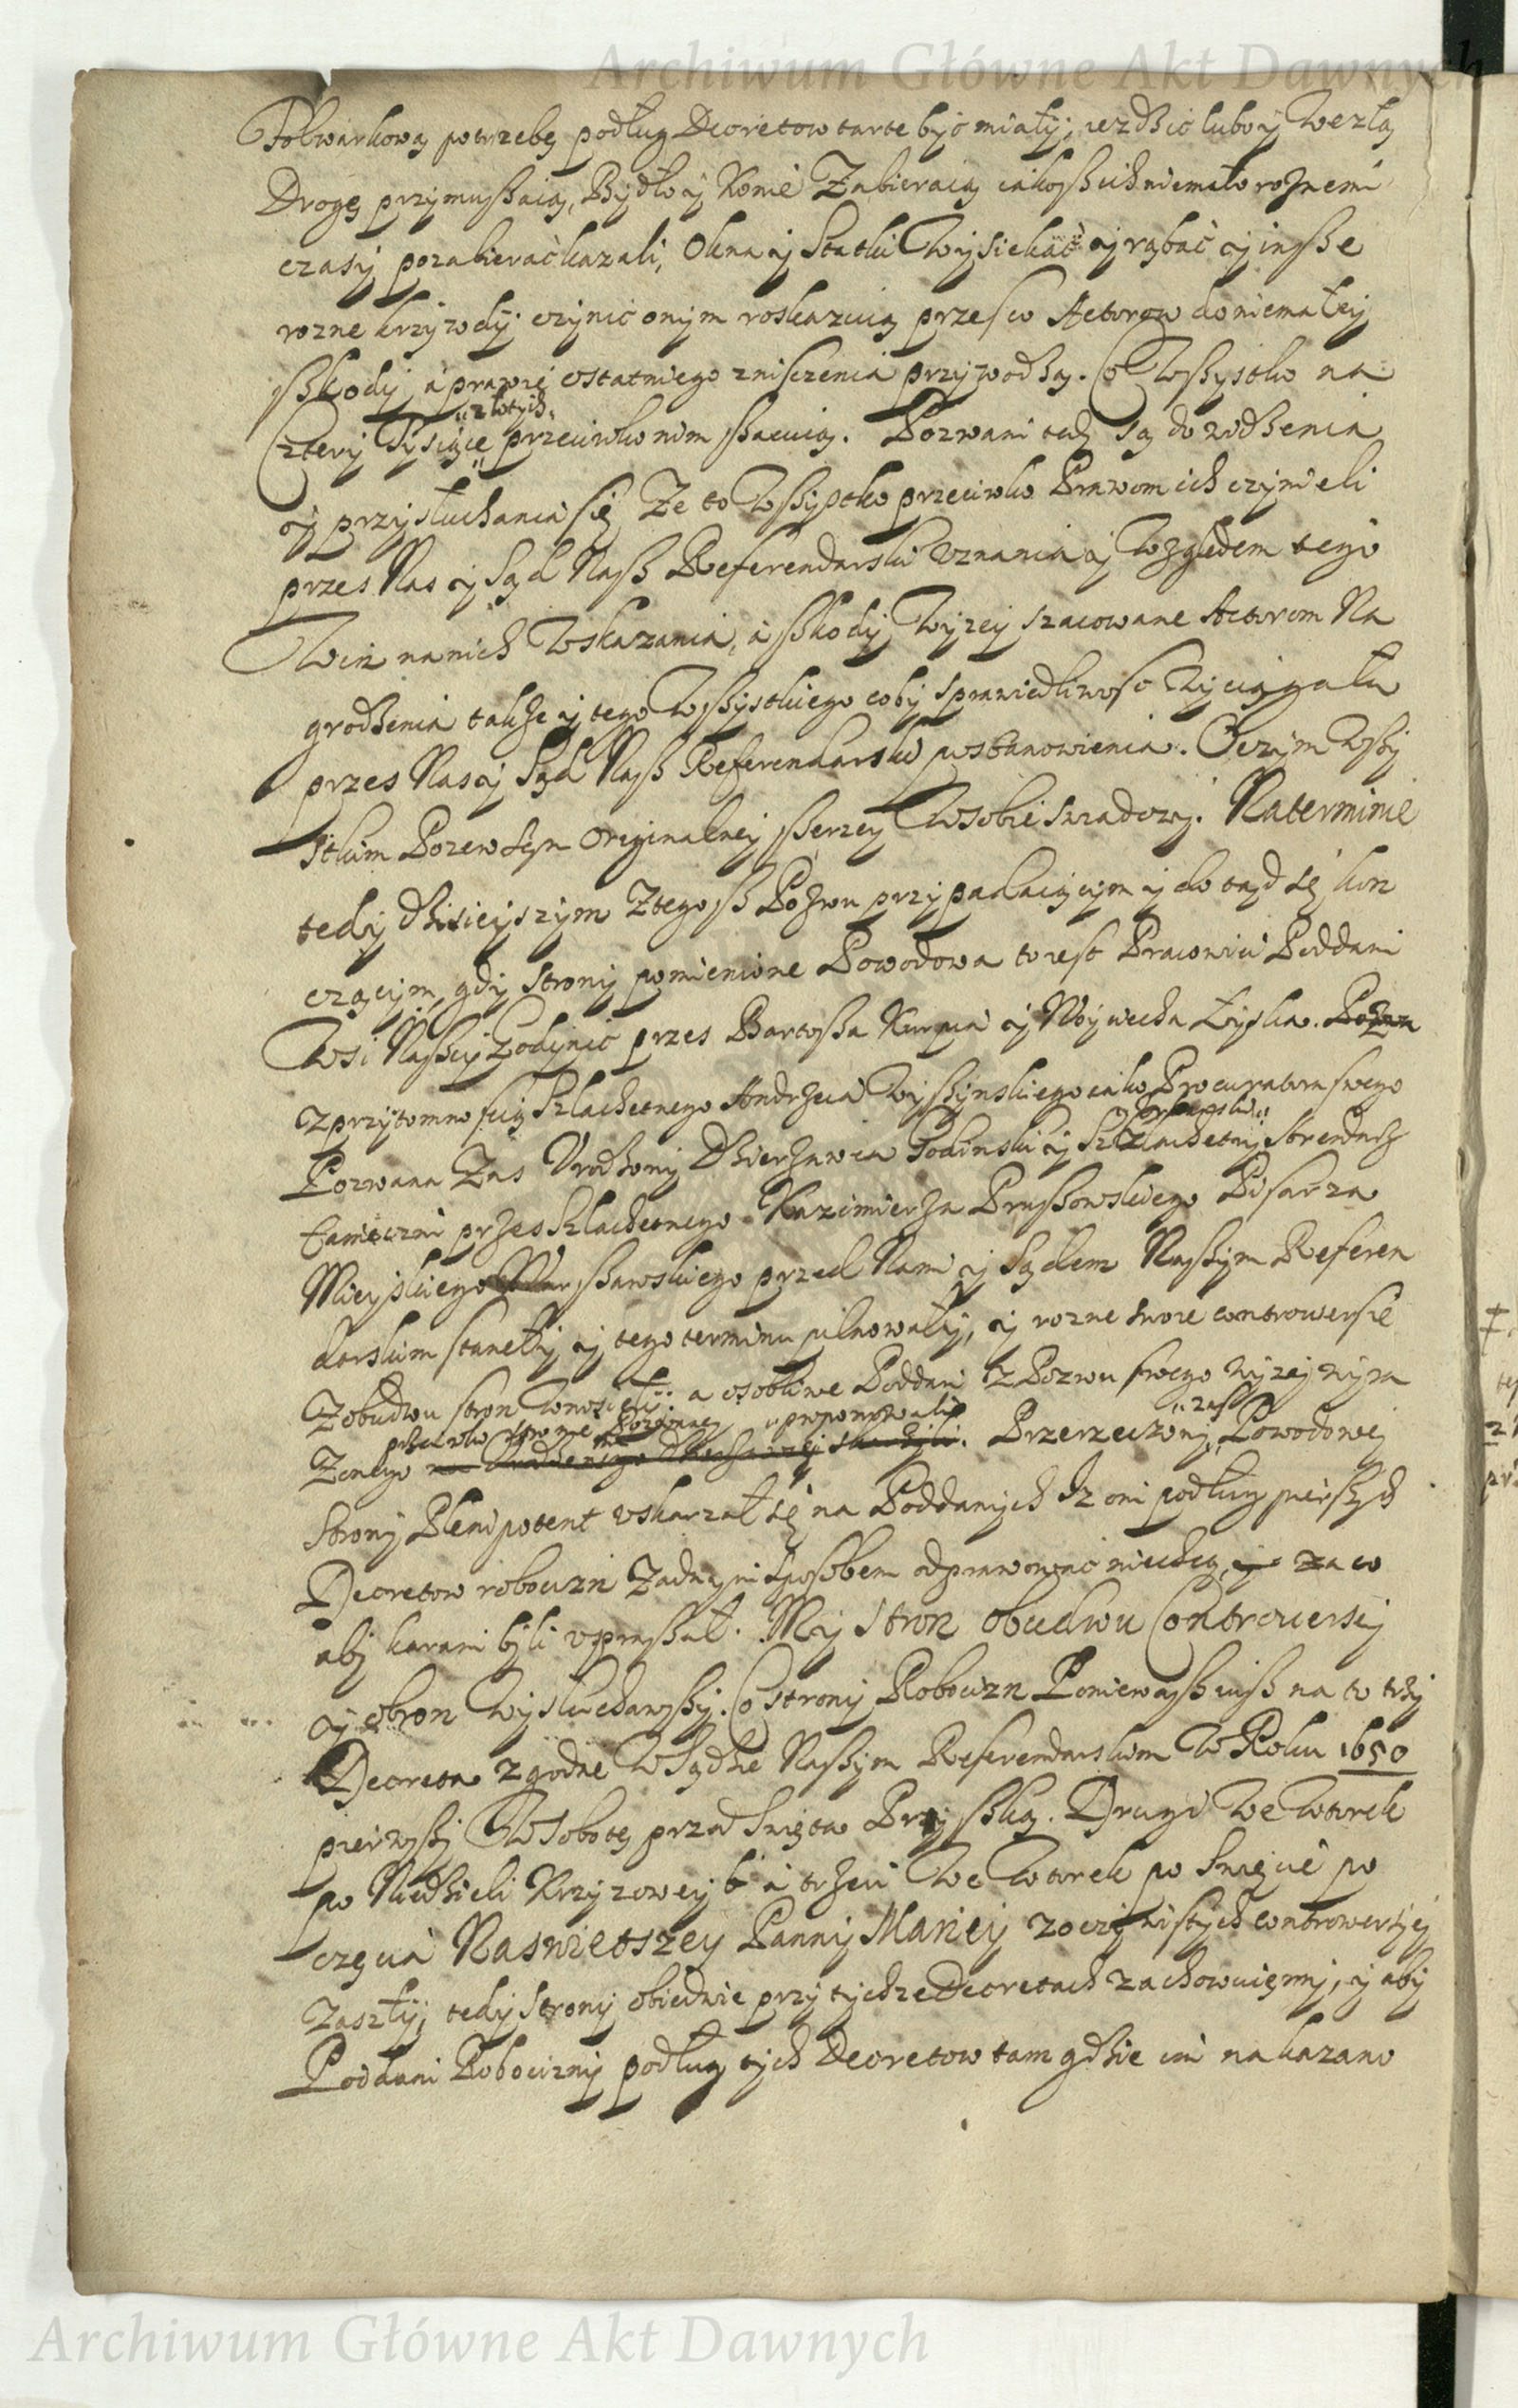 Archiwum Główne Akt Dawnych
Folwarkową potrzebę podług Decretow tarte być miały, iezdzić lubo y W ezłą
Drogę przymuszaią, Bydło y Konie Zabieraią iakosz ich niemało roznemi
czasy pozabierać kazali, Okna y Statki Wysiekać y rąbać y insze
rozne krzywdy czynić onym roskazuią przes co Actorow do niemałey
szkody a prawie ostatniego zniszczenia przywodzą. Co Wszystko na
„złotych„
Cztery Tysiące przeciwko nim szacuią. Pozwani tedy są do widzenia
y przysłuchania się, Ze to Wszystko przeciwko Prawom ich czynieli
przes Nas y Sąd Nasz Referendarski Uznania y Względem tego
Win na nich Wskazania, a szkody Wyzey szacowane Actorom Na
grodzenia takze y tego Wszystkiego coby sprawiedliwość Wyciągała
przes Nas y Sąd Nasz Referendarski postanowienia. O czym Wszy
stkim Pozew ten Originalney szerzey W sobie swiadczy. Na terminie
tedy dzisieyszym Z tegosz Pozwu przypadaiącym y do tąd się kon
czącym, gdy strony pomienione Powodowa to iest Pracowici Poddani
Wsi Naszey przes Bartosza Kurpia y Woyciecha Łyska. Pozwa
z przytomnoscią Szlachetnego Andrzeia Wyszynskiego iako Procuratora swego
Pozwana Zas Urodzony Dzierzawca y Szlachetny
przes Szlachetnego Kazimierza Pruszkowskiego Pisarza
Mieyskiego Warszawskiego przed Nami y Sądem Naszym Referen
darskim stanęły y tego terminu pilnowały, y rozne swoie controwersie
Z obudwu stron Wnosieli: a osobliwie Poddani Z Pozwu swego wyzey wyra
przeciwko stronie Pozwaney „proponowali „zas
Zonego na Urodzonego Dzierzawcę skarzyli. Przerzeczony Powodowey
Strony Plenipotent uskarzał się na Poddanych Iz oni podług pierszych
Decretow robocizn Zadnym sposobem odprawować niechcą, y za co
aby karani byli upraszał. My stron obudwu Controwersiy
y obron Wysłuchawszy. Co strony Robocizn Poniewasz iusz na to trzy
Decreta zgodne W Sądzie Naszym Referendarskim W Roku 1650
pierwszy W Sobotę przed Swiętą Pryszką. Drugi We Wtorek
po Niedzieli Krzyzowey a trzeci We Wtorek po Swięcie po
częcia Naswietszey Panny Mariey z oczywistych controwersiey
Zaszły, tedy Strony obiedwie przy tychze Decretach zachowuięmy, y aby
Poddani Robocizny podług tych Decretow tam gdzie im nakazano
Archiwum Główne Akt Dawnych